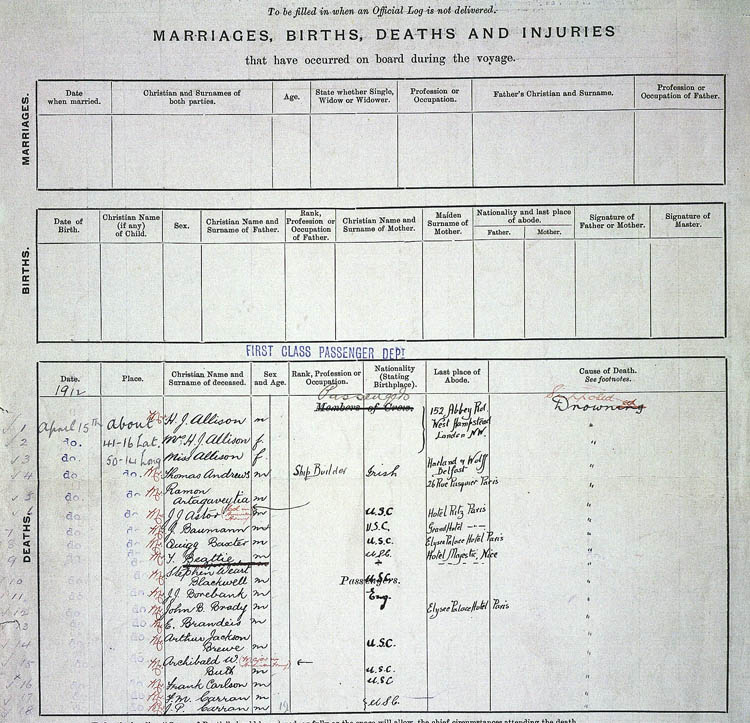 To be filled in when an Official Log is not delivered.
MARRIAGES, BIRTHS, DEATHS AND INJURIES
that have occurred on board during the voyage.
MARRIAGES.
Date when married. Christian and Surnames of both parties. Age. State whether Single, Widow or Widower. Profession or Occupation. Father's Christian and Surname. Profession or Occupation of Father.
BIRTHS.
Date of Birth. Christian Name (if any) of Child. Sex. Christian Name and Surname of Father. Rank, Profession or Occupation of Father. Christian Name and Surname of Mother. Maiden Surname of Mother. Nationality and last place of abode. Father. Mother. Signature of Father or Mother. Signature of Master.
FIRST CLASS PASSENGER DEPT
DEATHS.
Date. Place. Christian Name and Surname of deceased. Sex and Age. Rank, Profession or Occupation. Nationality (Stating Birthplace). Last place of Abode. Cause of Death. See footnotes.
1912
Passengers Supposed
Members of Crew. Drowning
1 April 15th about Mr H. J. Allison m 152 Abbey Rd. West Hampstead London N.W.
2 do. 41-16 Lat Mrs H J Allison f. "
3 do. 50-14 Long Miss Allison f. "
4 do. do. Mr Thomas Andrews m Ship Builder Irish Harland & Wolff Belfast "
5 do. do. Mr Ramon Artagaveytia m 26 Rue Pasquier Paris "
do. do. Mr J J Astor m U.S.C Hotel Ritz Paris "
7 do. do. Mr J. Baumann m U.S.C. Grand Hotel "
8 do. do. Mr Quigg Baxter m U.S.C. Elysee Palace Hotel Paris "
9 do. do. Mr T. Beattie m U.S.C. Hotel Majestic, Nice "
10 do. do. Mr Stephen Weart Blackwell m Passengers. U.S.C. "
11 do. do. Mr J.J. Borebank m Eng. "
12 do. do. Mr John B. Brady m Elysee Palace Hotel Paris "
13 do. do. Mr E. Brandeis m "
14 do. do. Mr Arthur Jackson Brewe m U.S.C. "
15 do. do. Mr Archibald W. Butt m U.S.C. "
16 do. do. Mr Frank Carlson m U.S.C "
do. do. Mr F. M. Carran m "
18 do. do. Mr J. P. Carran m 19 U.S.C. "